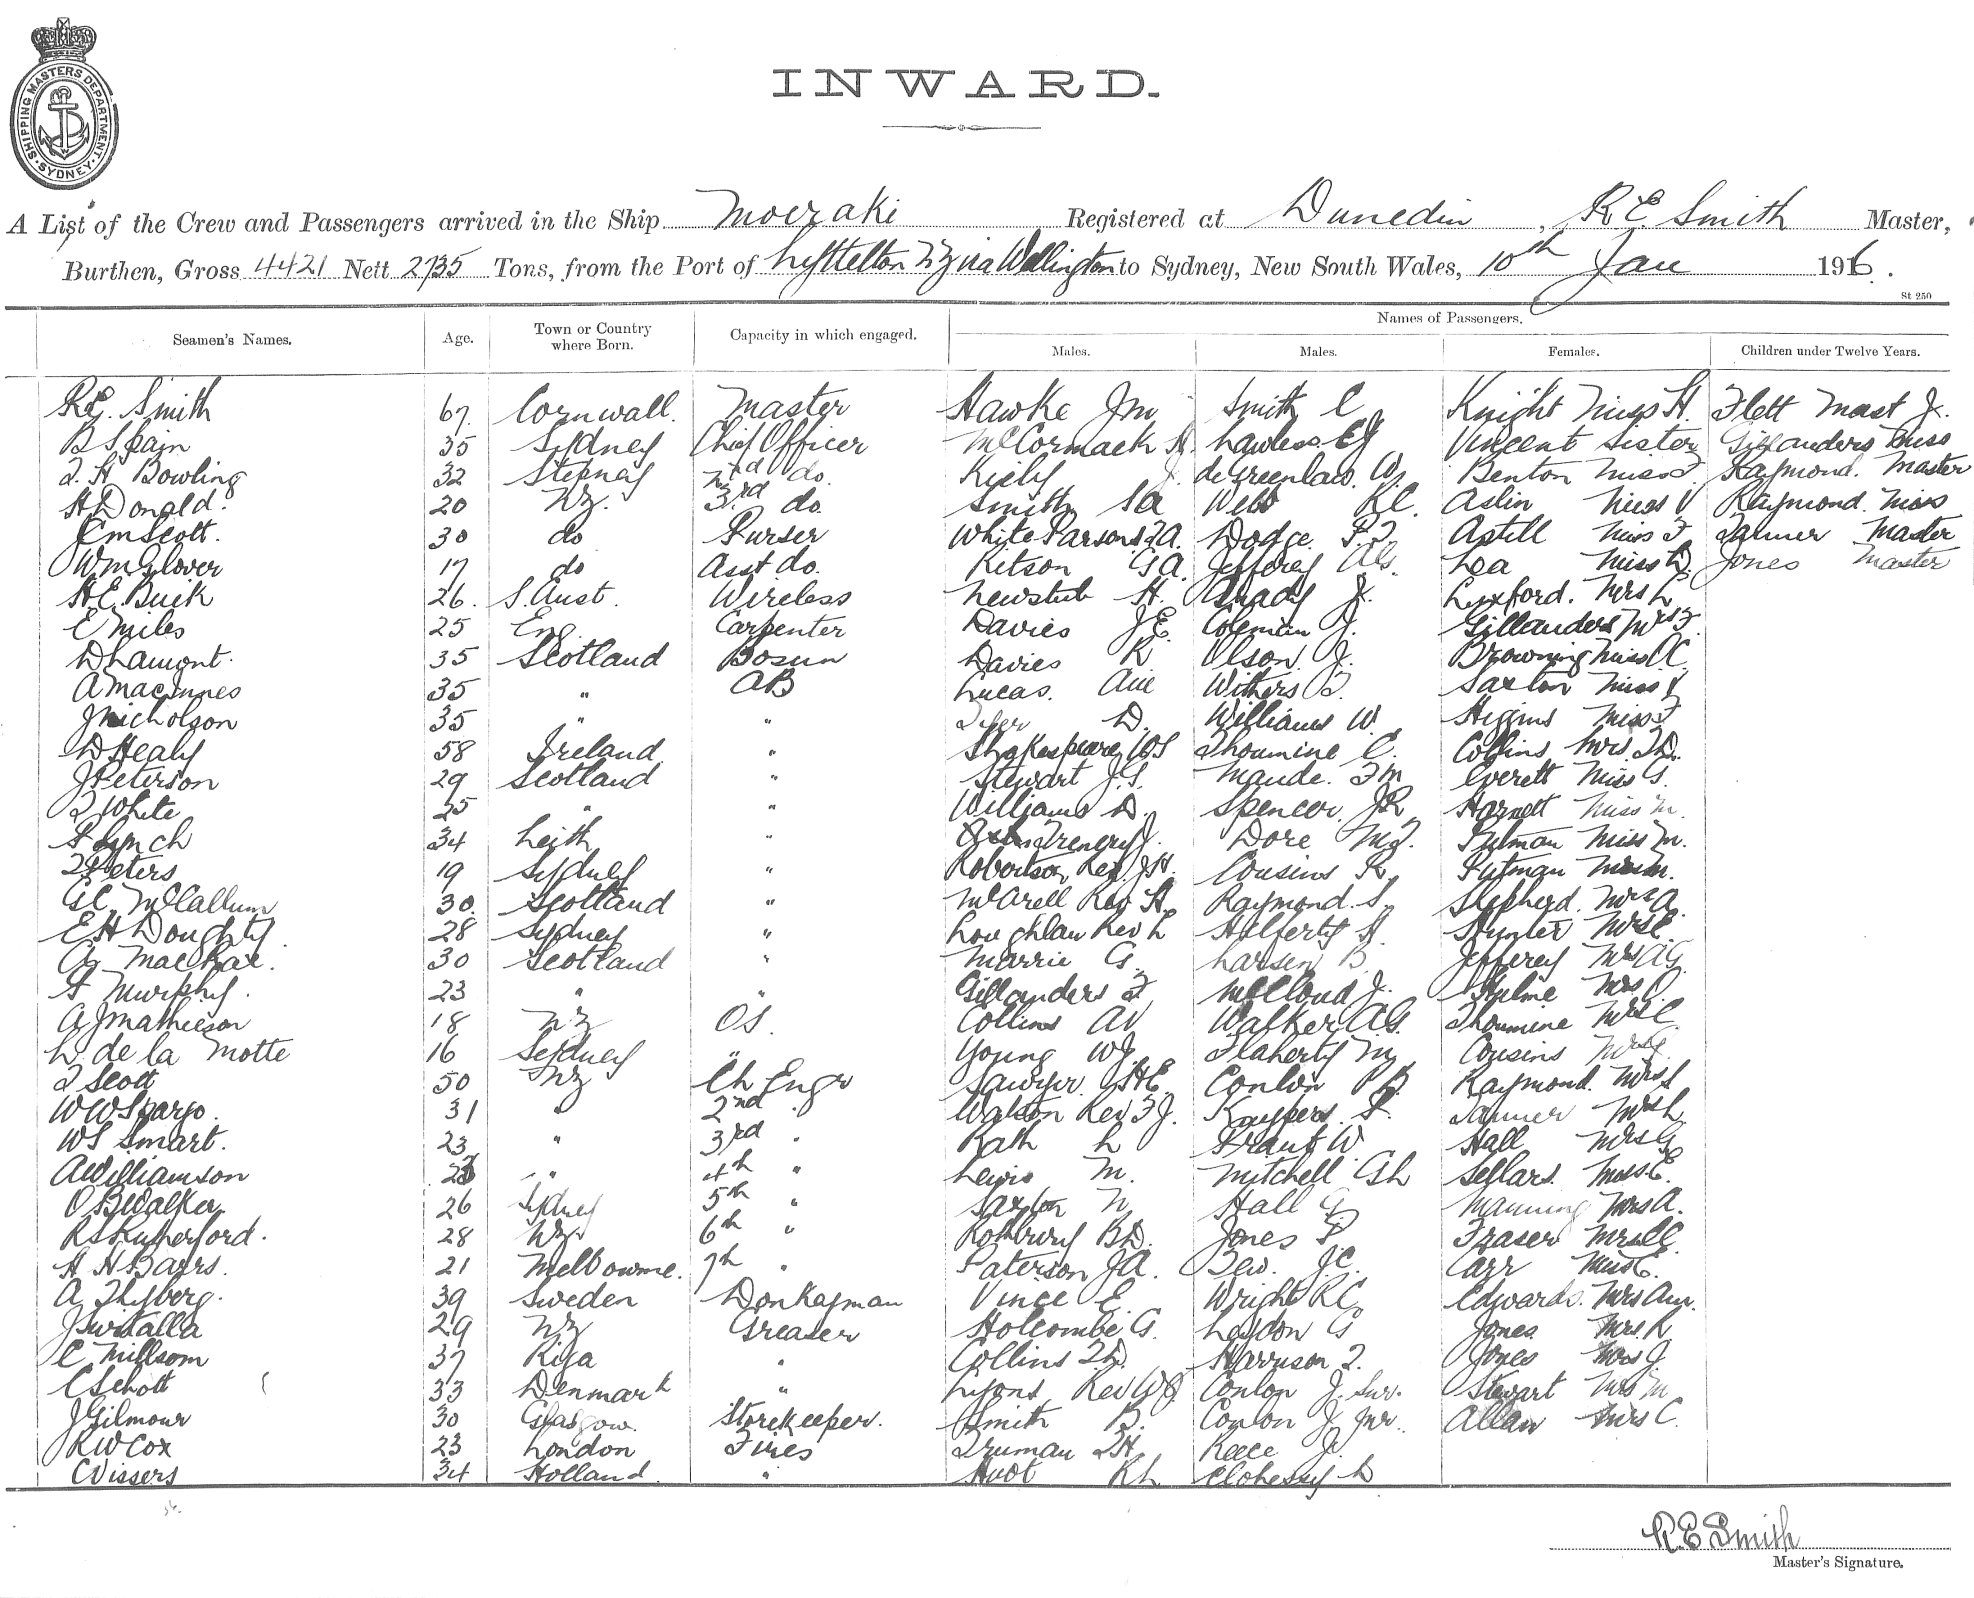 SHIPPING MASTERS DEPARTMENT · SYDNEY ·
INWARD.
A List of the Crew and Passengers arrived in the Ship Moeraki Registered at Dunedin, R E Smith Master,
Burthen, Gross 4421 Nett 2735 Tons, from the Port of Lyttelton NZ via Wellington to Sydney, New South Wales, 10th Jan 1916.
St 250
Names of Passengers.
Seamen's Names. Age. Town or Country where Born. Capacity in which engaged. Males. Males. Females. Children under Twelve Years.
R.E. Smith 67 Cornwall. Master Hawke J M Smith C Knight Miss H. Flett Mast J.
B Spain 35 Sydney Chief Officer McCormack Lawless Vincent Sister Gillanders Miss
Bowling 32 Stepney 2nd do. Kiely J. de Greenlaw. W. Benton Miss Raymond. Master
H Donald. 20 NZ. 3rd do. Smith Webb Aslin Miss V Raymond. Miss
E M Scott. 30 do Purser White Parsons Dodge. Astill Miss Tanner Master
W M Glover 17 do Asst do. Kitson G A. Jeffrey A G. Lea Miss D. Jones Master
H E Buik 26. S. Aust. Wireless H. J. Luxford. Mrs L
E Miles 25 Eng Carpenter Davies J E. Coleman J. Gillanders
D Lamont. 35 Scotland Bosun Davies R Olson. J. Browning Miss
A MacInnes 35 " AB Lucas. Withers Saxton Miss V
J Nicholson 35 " " D. Williams W. Higgins Miss
D Healy 58 Ireland " Shakespeare W S Thoumine C. Collins Mrs
J Peterson 29 Scotland " Stewart J. S. Maude. Everett Miss
White 25 " " Williams D. Spencer. Harnett Miss M.
Lynch 34 Leith " Dore Putman Miss M.
Peters 19 Sydney " Robertson Rev. J H. Cousins R. Putman
McCallum 30. Scotland " Rev H. Raymond. S. Shepherd. Mrs A.
E H Doughty. 28 Sydney " Loughlan Rev L Hunter Mrs
MacRae. 30 Scotland " G. Larsen B Jefferey Mrs A G.
Murphy. 23 " " Gillanders McCloud J. Hulme Mrs
A J Mathieson 18 NZ OS. Collins A V Walker A. G. Thoumine Mrs C.
L. de la Motte 16 Sydney " Young W J. Flaherty Cousins
Scott 50 NZ Ch Engr Sawyer H E Conlon B. Raymond. Mrs S
W W Spargo. 31 " 2nd " Watson Rev Kuypers. Tanner Mrs L
W S Smart. 23 " 3rd " Rath L Grant W. Hall Mrs G
A Williamson " 4th " Lewis M. Mitchell G L Sellars.
O B Walker 26 Sydney 5th " Saxton N Hall G. Manning Mrs A.
R S Rutherford. 28 NZ. 6th " Rothbury B D. Jones Fraser
H H Bayrs. 21 Melbourne. 7th " Paterson J A. Bew. J C. Carr
A Thyberg. 39 Sweden Donkeyman Vince E. Wright R C. Edwards. Mrs
J 29 NZ Greaser Holcombe G. Leydon G Jones Mrs R
C Millsom 37 Riga " Collins Harrison Jones Mrs J.
C Schott 33 Denmark " Lyons Rev Conlon J. Snr. Stewart Mrs M
J Gilmour 30 Glasgow. Storekeeper. Smith B. Conlon J. Jnr. Allan Mrs C.
R W Cox 23 London Fires Truman Reece J.
C Vissers 34 Holland " R L Clohessy D
R. E Smith
Master's Signature.